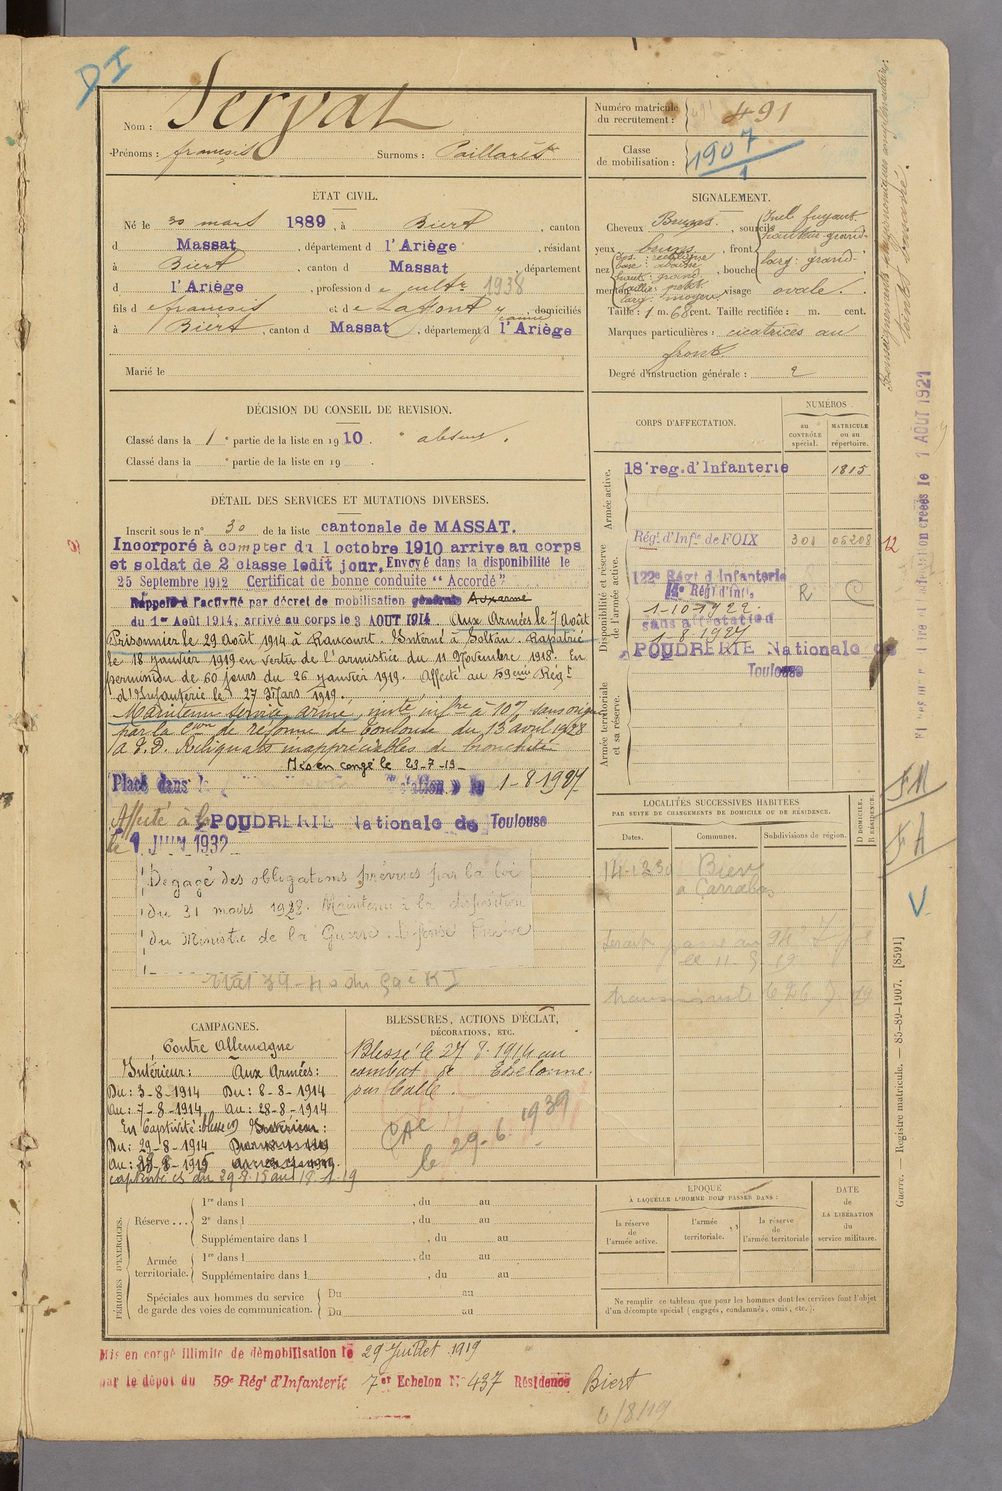 DI
Nom : Servat
Prénoms : françois Surnoms : Paillarès
Numéro matricule du recrutement : 491
Classe de mobilisation : 1907
1
ÉTAT CIVIL.
Né le 30 mars 1889, à Biert, canton
d Massat, département d l'Ariège, résidant
à Biert, canton d Massat, département
d l'Ariège, profession de cultr 1938
fils d e françois et de Lafont, domiciliés
à Biert, canton d Massat, département d l'Ariège
Marié le
SIGNALEMENT.
Cheveux Bruns, sourcils
yeux bruns, front
nez dos : rectiligne base : haut : grand saillie : petit larg : moyenne, bouche
menton visage ovale.
Incl. fuyant
hauteur grand
larg : grand
Taille : 1 m. 68 cent. Taille rectifiée : m. cent.
Marques particulières : cicatrices au
front.
Degré d'instruction générale : 2
DÉCISION DU CONSEIL DE REVISION.
Classé dans la 1e partie de la liste en 1910. absent.
Classé dans la e partie de la liste en 19 .
DÉTAIL DES SERVICES ET MUTATIONS DIVERSES.
Inscrit sous le n° 30 de la liste cantonale de MASSAT.
Incorporé à compter du 1 octobre 1910 arrive au corps
et soldat de 2 classe ledit jour, Envoyé dans la disponibilité le
25 Septembre 1912 Certificat de bonne conduite "Accordé"
Rappelé à l'activité par décret de mobilisation générale
du 1er Août 1914, arrivé au corps le 3 AOUT 1914. Aux Armées le 7 Août
Prisonnier le 29 Août 1914 à Raucourt. Interné à Soltau. Rapatrié
le 18 janvier 1919 en vertu de l'armistice du 11 Novembre 1918. En
permission de 60 jours du 26 janvier 1919. Affecté au 59ème Régt
d'Infanterie le 27 Mars 1919.
Maintenu service armé, invté infre à 10% sans origine
par la Con de réforme de Toulouse du 13 avril 1928
Reliquats inappréciables de bronchite
Mis en congé le 23-7-19
Placé dans la 1-8-1927
Affecté à la POUDRERIE Nationale de Toulouse
le 1 JUIN 1932
Dégagé des obligations prévues par la loi
du 31 mars 1928. Maintenu à la disposition
du Ministre de la Guerre.
CORPS D'AFFECTATION.
NUMÉROS
au CONTRÔLE spécial.
MATRICULE ou au répertoire.
Armée active.
18e reg. d'Infanterie 1815
Disponibilité et réserve de l'armée active.
Régt d'Infie de FOIX 301 05208 12
122e Régt d'Infanterie
14e Régt d'Inf. R C
1-10-1922
sans affectation
1-8-1927
POUDRERIE Nationale de
Toulouse
Armée territoriale et sa réserve.
LOCALITÉS SUCCESSIVES HABITÉES
PAR SUITE DE CHANGEMENTS DE DOMICILE OU DE RÉSIDENCE.
Dates. Communes. Subdivisions de région. D DOMICILE. R RÉSIDENCE.
14-1-23 Biert
CAMPAGNES.
Contre Allemagne
Intérieur : Aux Armées :
Du : 3-8-1914 Du : 8-8-1914
Au : 7-8-1914 Au : 28-8-1914
En Captivité : blessé
Du : 29-8-1914
captivité du 29.8.15 au 18.1.19
BLESSURES, ACTIONS D'ÉCLAT,
DÉCORATIONS, ETC.
Blessé le 27 8. 1914 au
combat de
par balle.
le 29-6-1939
PÉRIODES D'EXERCICES.
Réserve ... 1re dans l , du au
2e dans l , du au
Supplémentaire dans l , du au
Armée territoriale. 1re dans l , du au
Supplémentaire dans l , du au
Spéciales aux hommes du service Du au
de garde des voies de communication. Du au
ÉPOQUE
À LAQUELLE L'HOMME DOIT PASSER DANS :
la réserve de l'armée active.
l'armée territoriale.
la réserve de l'armée territoriale
DATE DE LA LIBÉRATION du service militaire.
Ne remplir ce tableau que pour les hommes dont les services font l'objet
d'un décompte spécial (engagés, condamnés, omis, etc.).
Mis en congé illimité de démobilisation le 29 Juillet 1919
par le dépôt du 59e Régt d'Infanterie 7er Echelon N° 437 Résidence Biert
6/8/19
FM
FA
V
Guerre. — Registre matricule. — 85-89-1907. [8591]